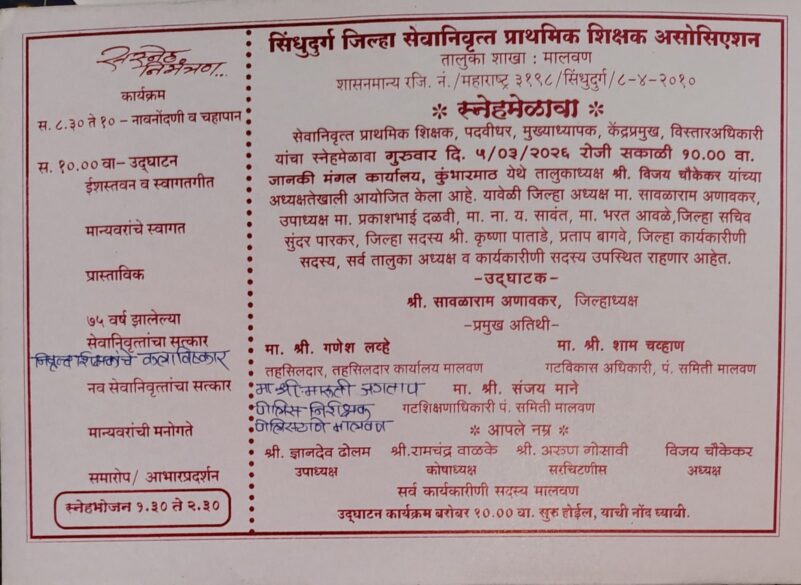 सस्नेह
निमंत्रण...
कार्यक्रम
स. ८.३० ते १० – नावनोंदणी व चहापान
स. १०.०० वा– उद्घाटन
ईशस्तवन व स्वागतगीत
मान्यवरांचे स्वागत
प्रास्ताविक
७५ वर्ष झालेल्या
सेवानिवृत्तांचा सत्कार
निवृत्त शिक्षकांचे कलाविष्कार
नव सेवानिवृत्तांचा सत्कार
मान्यवरांची मनोगते
समारोप/ आभारप्रदर्शन
स्नेहभोजन १.३० ते २.३०
सिंधुदुर्ग जिल्हा सेवानिवृत्त प्राथमिक शिक्षक असोसिएशन
तालुका शाखा : मालवण
शासनमान्य रजि. नं./महाराष्ट्र ३१९८/सिंधुदुर्ग/८-४-२०१०
* स्नेहमेळावा *
सेवानिवृत्त प्राथमिक शिक्षक, पदवीधर, मुख्याध्यापक, केंद्रप्रमुख, विस्तारअधिकारी
यांचा स्नेहमेळावा गुरुवार दि. ५/०३/२०२६ रोजी सकाळी १०.०० वा.
जानकी मंगल कार्यालय, कुंभारमाठ येथे तालुकाध्यक्ष श्री. विजय चौकेकर यांच्या
अध्यक्षतेखाली आयोजित केला आहे. यावेळी जिल्हा अध्यक्ष मा. सावळाराम अणावकर,
उपाध्यक्ष मा. प्रकाशभाई दळवी, मा. ना. य. सावंत, मा. भरत आवळे,जिल्हा सचिव
सुंदर पारकर, जिल्हा सदस्य श्री. कृष्णा पाताडे, प्रताप बागवे, जिल्हा कार्यकारीणी
सदस्य, सर्व तालुका अध्यक्ष व कार्यकारीणी सदस्य उपस्थित राहणार आहेत.
–उद्घाटक–
श्री. सावळाराम अणावकर, जिल्हाध्यक्ष
–प्रमुख अतिथी–
मा. श्री. गणेश लव्हे मा. श्री. शाम चव्हाण
तहसिलदार, तहसिलदार कार्यालय मालवण गटविकास अधिकारी, पं. समिती मालवण
मा. श्री. मारूती जगताप मा. श्री. संजय माने
पोलिस निरीक्षक गटशिक्षणाधिकारी पं. समिती मालवण
पोलिसठाणे मालवण * आपले नम्र *
श्री. ज्ञानदेव ढोलम श्री.रामचंद्र वाळके श्री. अरुण गोसावी विजय चौकेकर
उपाध्यक्ष कोषाध्यक्ष सरचिटणीस अध्यक्ष
सर्व कार्यकारीणी सदस्य मालवण
उद्घाटन कार्यक्रम बरोबर १०.०० वा. सुरु होईल, याची नोंद घ्यावी.